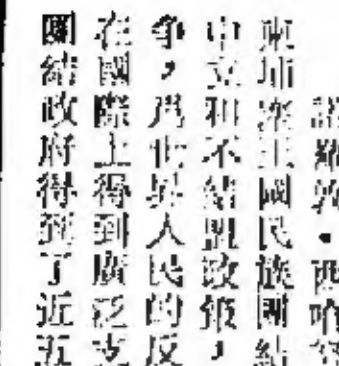 諾羅敦·西哈努
柬埔寨王國民族團結
中立和不結盟政策，
争，爲世界人民的反
在國際上得到廣泛支
團結政府得到了近五